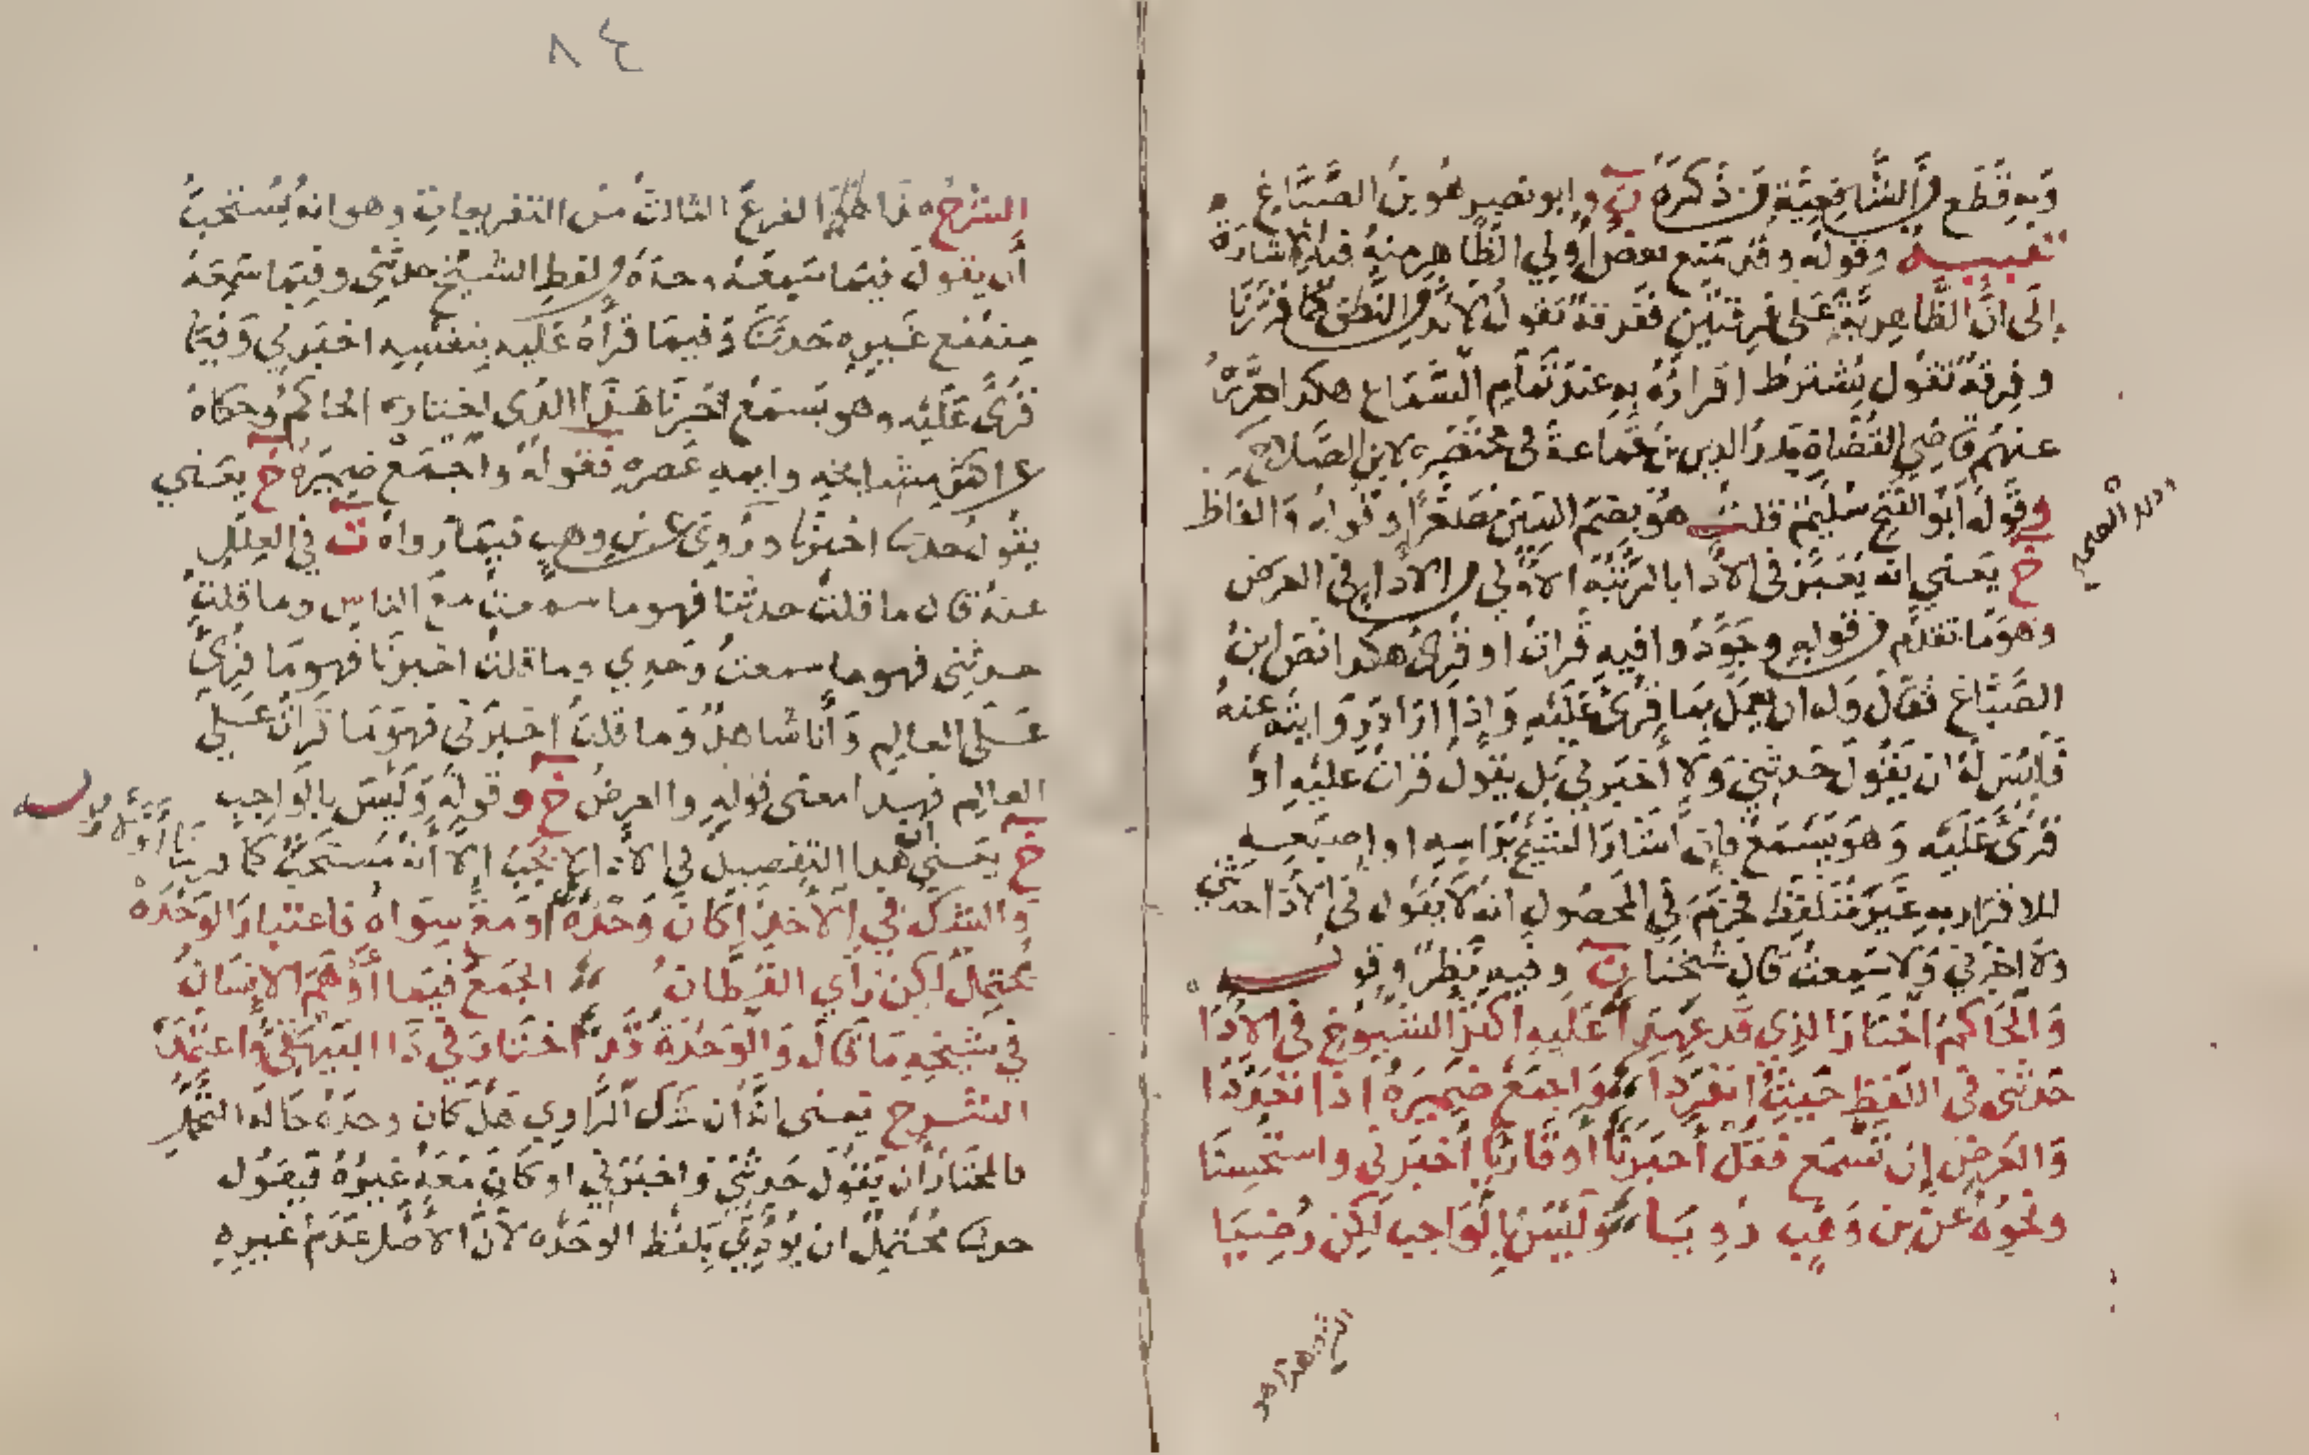 وَبِهِ قَطَعَ في الشَّافِعِيَّةِ مَن ذَكَرَهُ ن وابو نصرٍ هُو بنُ الصَّبَّاغِ
تنبيه وقوله وقد مَنَع بعضُ أُولي الظَّاهر منه فيه الاشارَة
إلى انَّ الظَّاهِريَّةَ عَلى فِرقتَين فَفِرقةٌ تقولُ لابُدَّ من النُطق كما قَرَّرنَا
وفِرقةٌ تقُول يُشترط اقرارُهُ به عندَ تمَام السَّمَاع هكذا
عنهُم قاضِي القُضَاة بَدرُ الدين بنُ جَمَاعة في مختَصَره لابن الصَّلاح
وقَوله أبو الفَتح سُلَيم قلت هو بضم السِّين مُصَغَّرًا وقوله والفاظ
خ يَعني انه يُعَبِّر في الأدَا بالمرتَبَة الأولى من الأداء في العرض
وهو مَا تقدَّم من قوله وجَوَّدُوا فيه قَراتُ او قُرِئ هكذا نصَّ ابنُ
الصَّبَّاغ فقال وَله ان يعمَل بمَا قُرِئ عَلَيه وَاذا ارادَ رِوَايته عنهُ
فَليسَ لهُ ان يَقُولَ حَدثني وَلا أخبَرني بَل يقُولُ قرأتُ عليه اوْ
قُرِئَ عَلَيه وَهو يَسْمَعُ فإن أشَارَ الشيخُ برَاسِهِ او اصبَعِه
للاقرار به غَيرَ مُتَلفِّظ فجَزَمَ في المحصُولِ انهُ لا يَقُولُ في الأدَا حدثني
ولا اخبرني وَلا سَمِعتُ قال شيخُنا ن وفيه نَظرٌ وقو
وَالحَاكمُ اختَارَ الذِي قَد عَهِدَا عَلَيهِ اكثرَ الشيُوخِ في الأدَا
حَدثني في اللفظِ حَيثُ انفرَدا وَاجمَعْ ضَمِيرَهُ اذا تَعَدَّدَا
وَالعَرضِ إن تَسْمَع فَقُل أخبَرَنَا أو قَارِيًا أخبَرَني واستُحسِنَا
ونحوُهُ عَن بن وَهبٍ رُوِيَا وَلَيسَ بالوَاجب لكن رُضِيَا
الشرح هذا هُوَ الفرعُ الثالثُ مِن التفريعاتِ وهو انه يُستَحبُّ
أن يقولَ فيمَا سَمِعَهُ وحدَهُ من لفظِ الشيخ حدثني وفيمَا سَمِعَهُ
مِنهُ مَع غَيرِه حَدثنَا وَفيمَا قَرَأهُ عَليه بنفسِهِ اخبَرني وَفيمَا
قُرِئَ عَلَيْه وهو يَسمَعُ اخبرنَا هَذَا الذي اختاره الحاكمُ وحكاهُ
عن اكثر مشايخه وايمه عَصرهِ فقوله وَاجمَع ضميرَهُ خ يعني
يقُول حدثنا اخبرنا ورُويَ عن بن وهبٍ فيمَا رواهُ ت في العِلل
عنهُ قال ما قلتُ حدثنا فهو ما سمعتُ معَ الناسِ وما قلتُ
حدثني فهو ما سمعتُ وَحدِي وما قلتُ اخبرنَا فهو مَا قُرِئَ
عَلى العالِم وَأنا شاهدٌ وَما قلتُ اخبَرَني فهو مَا قَرَاتُ عَلى
العالِم فهذا معنى قوله والعرضُ خ وقوله وَلَيسَ بالوَاجِب
خ يعني ان هذا التفصيل في الأدا لا يجبُ إلا أنهُ مُستَحَبٌّ كما
والشكُّ في الأخذِ أكَانَ وَحْدَهُ أو مَعْ سِوَاهُ فاعتبارُ الوَحْدَهْ
مُحتَملٌ لكن رَأيُ القطَّانُ الجمعُ فيمَا أَوْهَمَ الإنسَانُ
في شيخِهِ مَا قَالَ وَالوَحْدَةُ قَد اختَارَ في ذَا البَيهَقيُّ وَاعتَمَدْ
الشرح يعني انَّهُ ان شكَّ الرَّاوي هَل كَان وحدَهُ حَالةَ التَّحمُّلِ
فالمختارُ أن يَقُولَ حَدثني وَاخبَرَني او كَانَ مَعَهُ غيرُهُ فَيقُول
حدثنا مُحتَمِلٌ ان يُؤدِّيَ بلَفظ الوَحدَه لأنَّ الأصْل عَدَمُ غيرِهِ